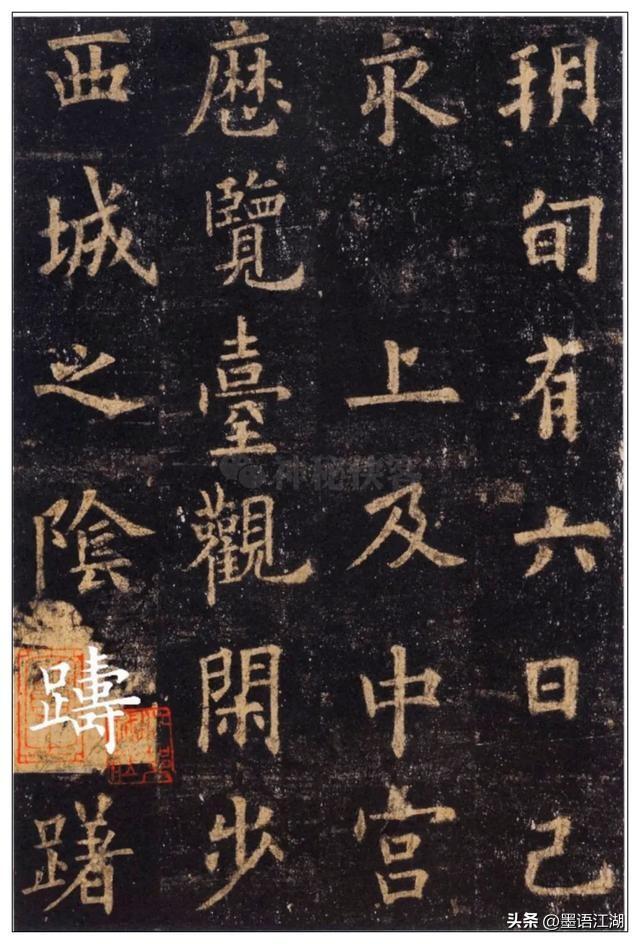 朔旬有六日己
亥 上及中宮
歷覽臺觀閑步
西城之陰躊躇
神秘侠客
头条 @墨语江湖